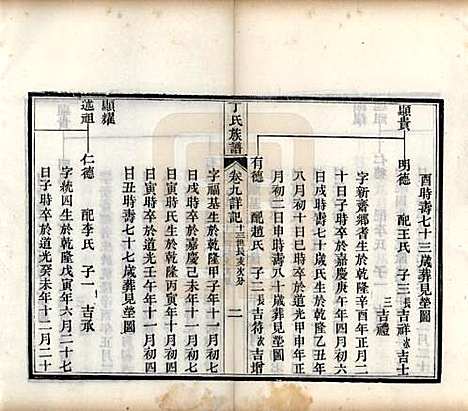 酉時壽七十三歲葬見塋圖
顯貴
明德 配王氏 子三 長吉祥 次吉士 三吉禮
字新齋鄉耆生於乾隆辛酉年正月二
十日子時卒於嘉慶庚午年四月初六
日戌時壽七十歲氏生於乾隆乙丑年
八月初十日巳時卒於道光甲申年二
月初二日申時壽八十歲葬見塋圖
有德 配趙氏 子二 長吉符 次吉增
丁氏族譜
卷九詳記
十三世長支次分
二
字福基生於乾隆甲子年十一月初七
日戌時卒於嘉慶己未年十一月初四
日寅時氏生於乾隆丙寅年十月初四
日寅時卒於道光壬午年十一月初四
日丑時壽七十七歲葬見塋圖
顯耀
進祖
仁德 配李氏 子一 吉承
字統四生於乾隆戊寅年六月二十七
日子時卒於道光癸未年十二月二十